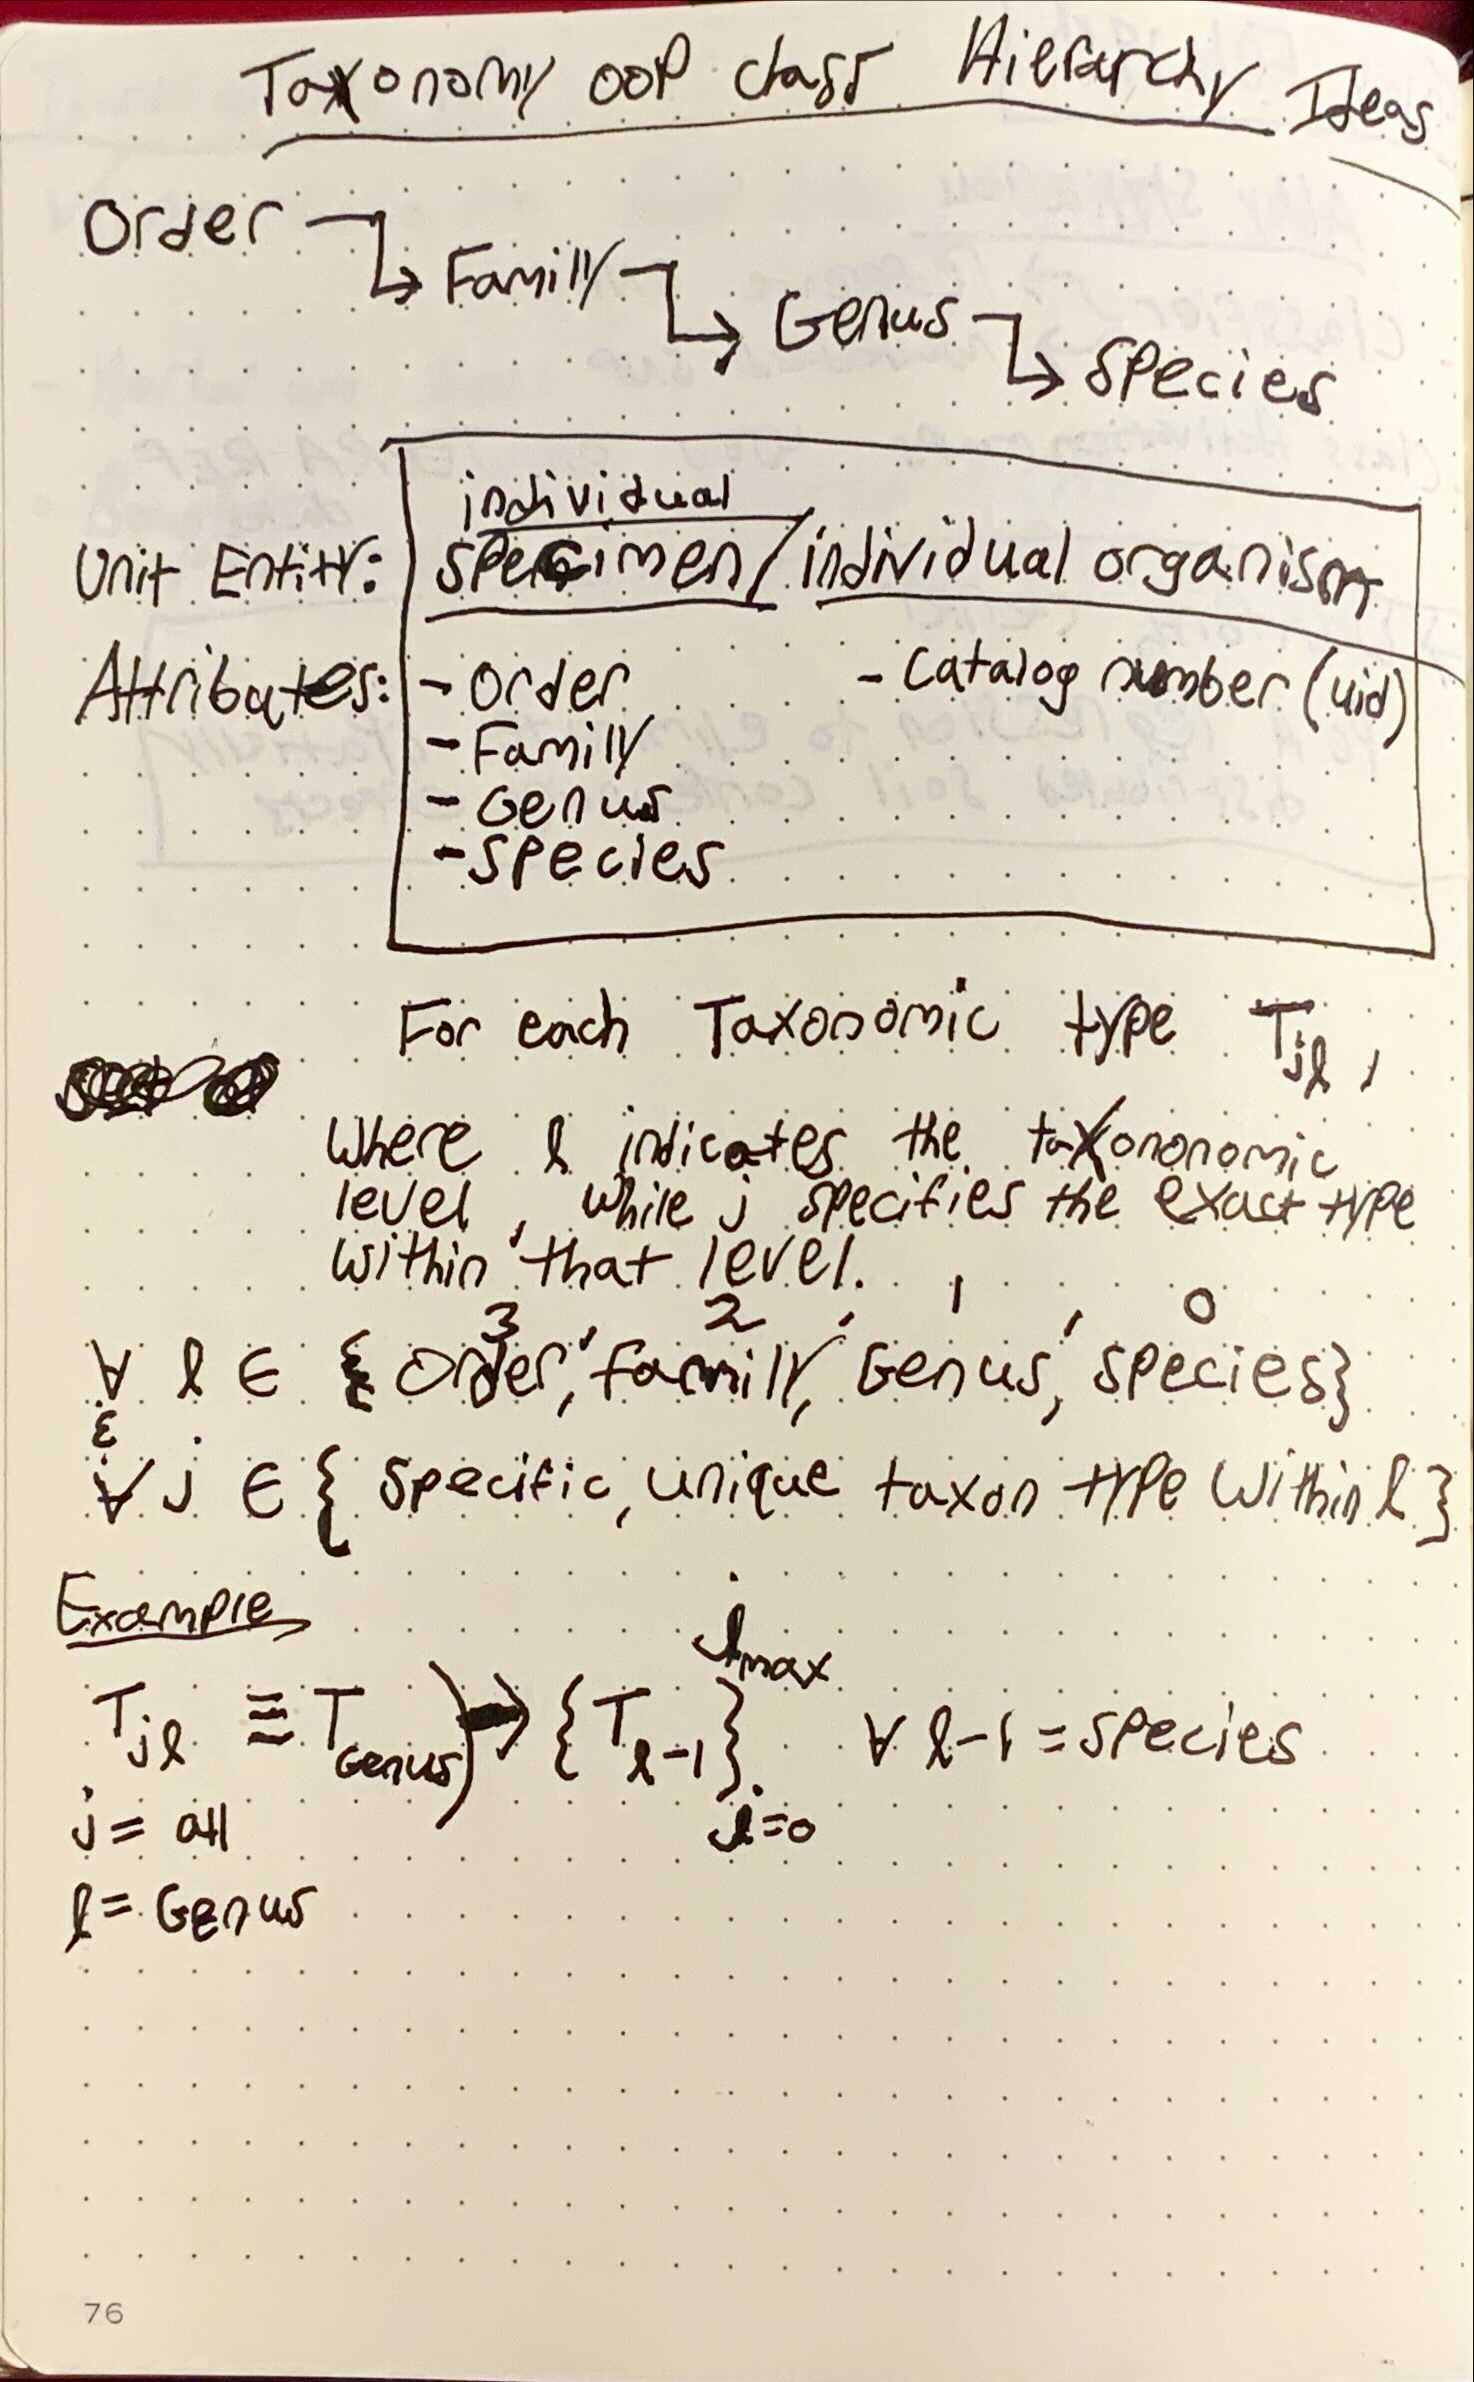 Taxonomy OOP Class Hierarchy Ideas
Order
Family
Genus
Species
individual
Unit Entity: specimen / individual organism
Attributes: - Order - Catalog number (uid)
- Family
- Genus
- Species
For each Taxonomic type T_jl ,
Where l indicates the taxononomic
level, while j specifies the exact type
within that level.
3 2 1 0
∀ l ∈ {Order, Family, Genus, Species}
&
∀ j ∈ { specific, unique taxon type within l }
Example
T_jl ≡ T_Genus) → {T_l-1}_l=0^lmax ∀ l-1 = species
j = all
l = Genus
76